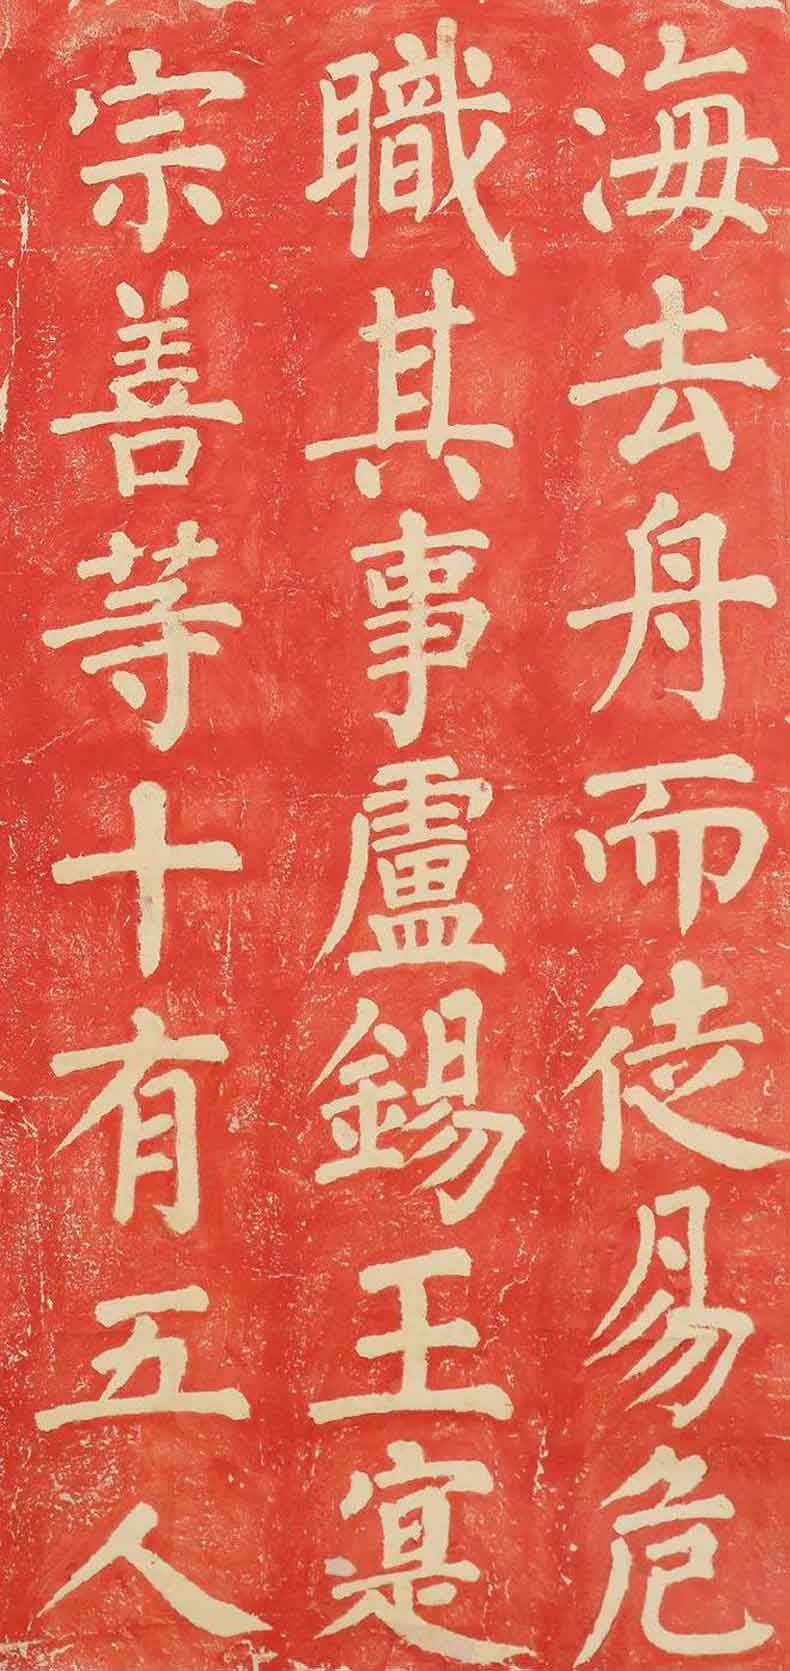 海去舟而徒易危
職其事盧錫王寔
宗善等十有五人